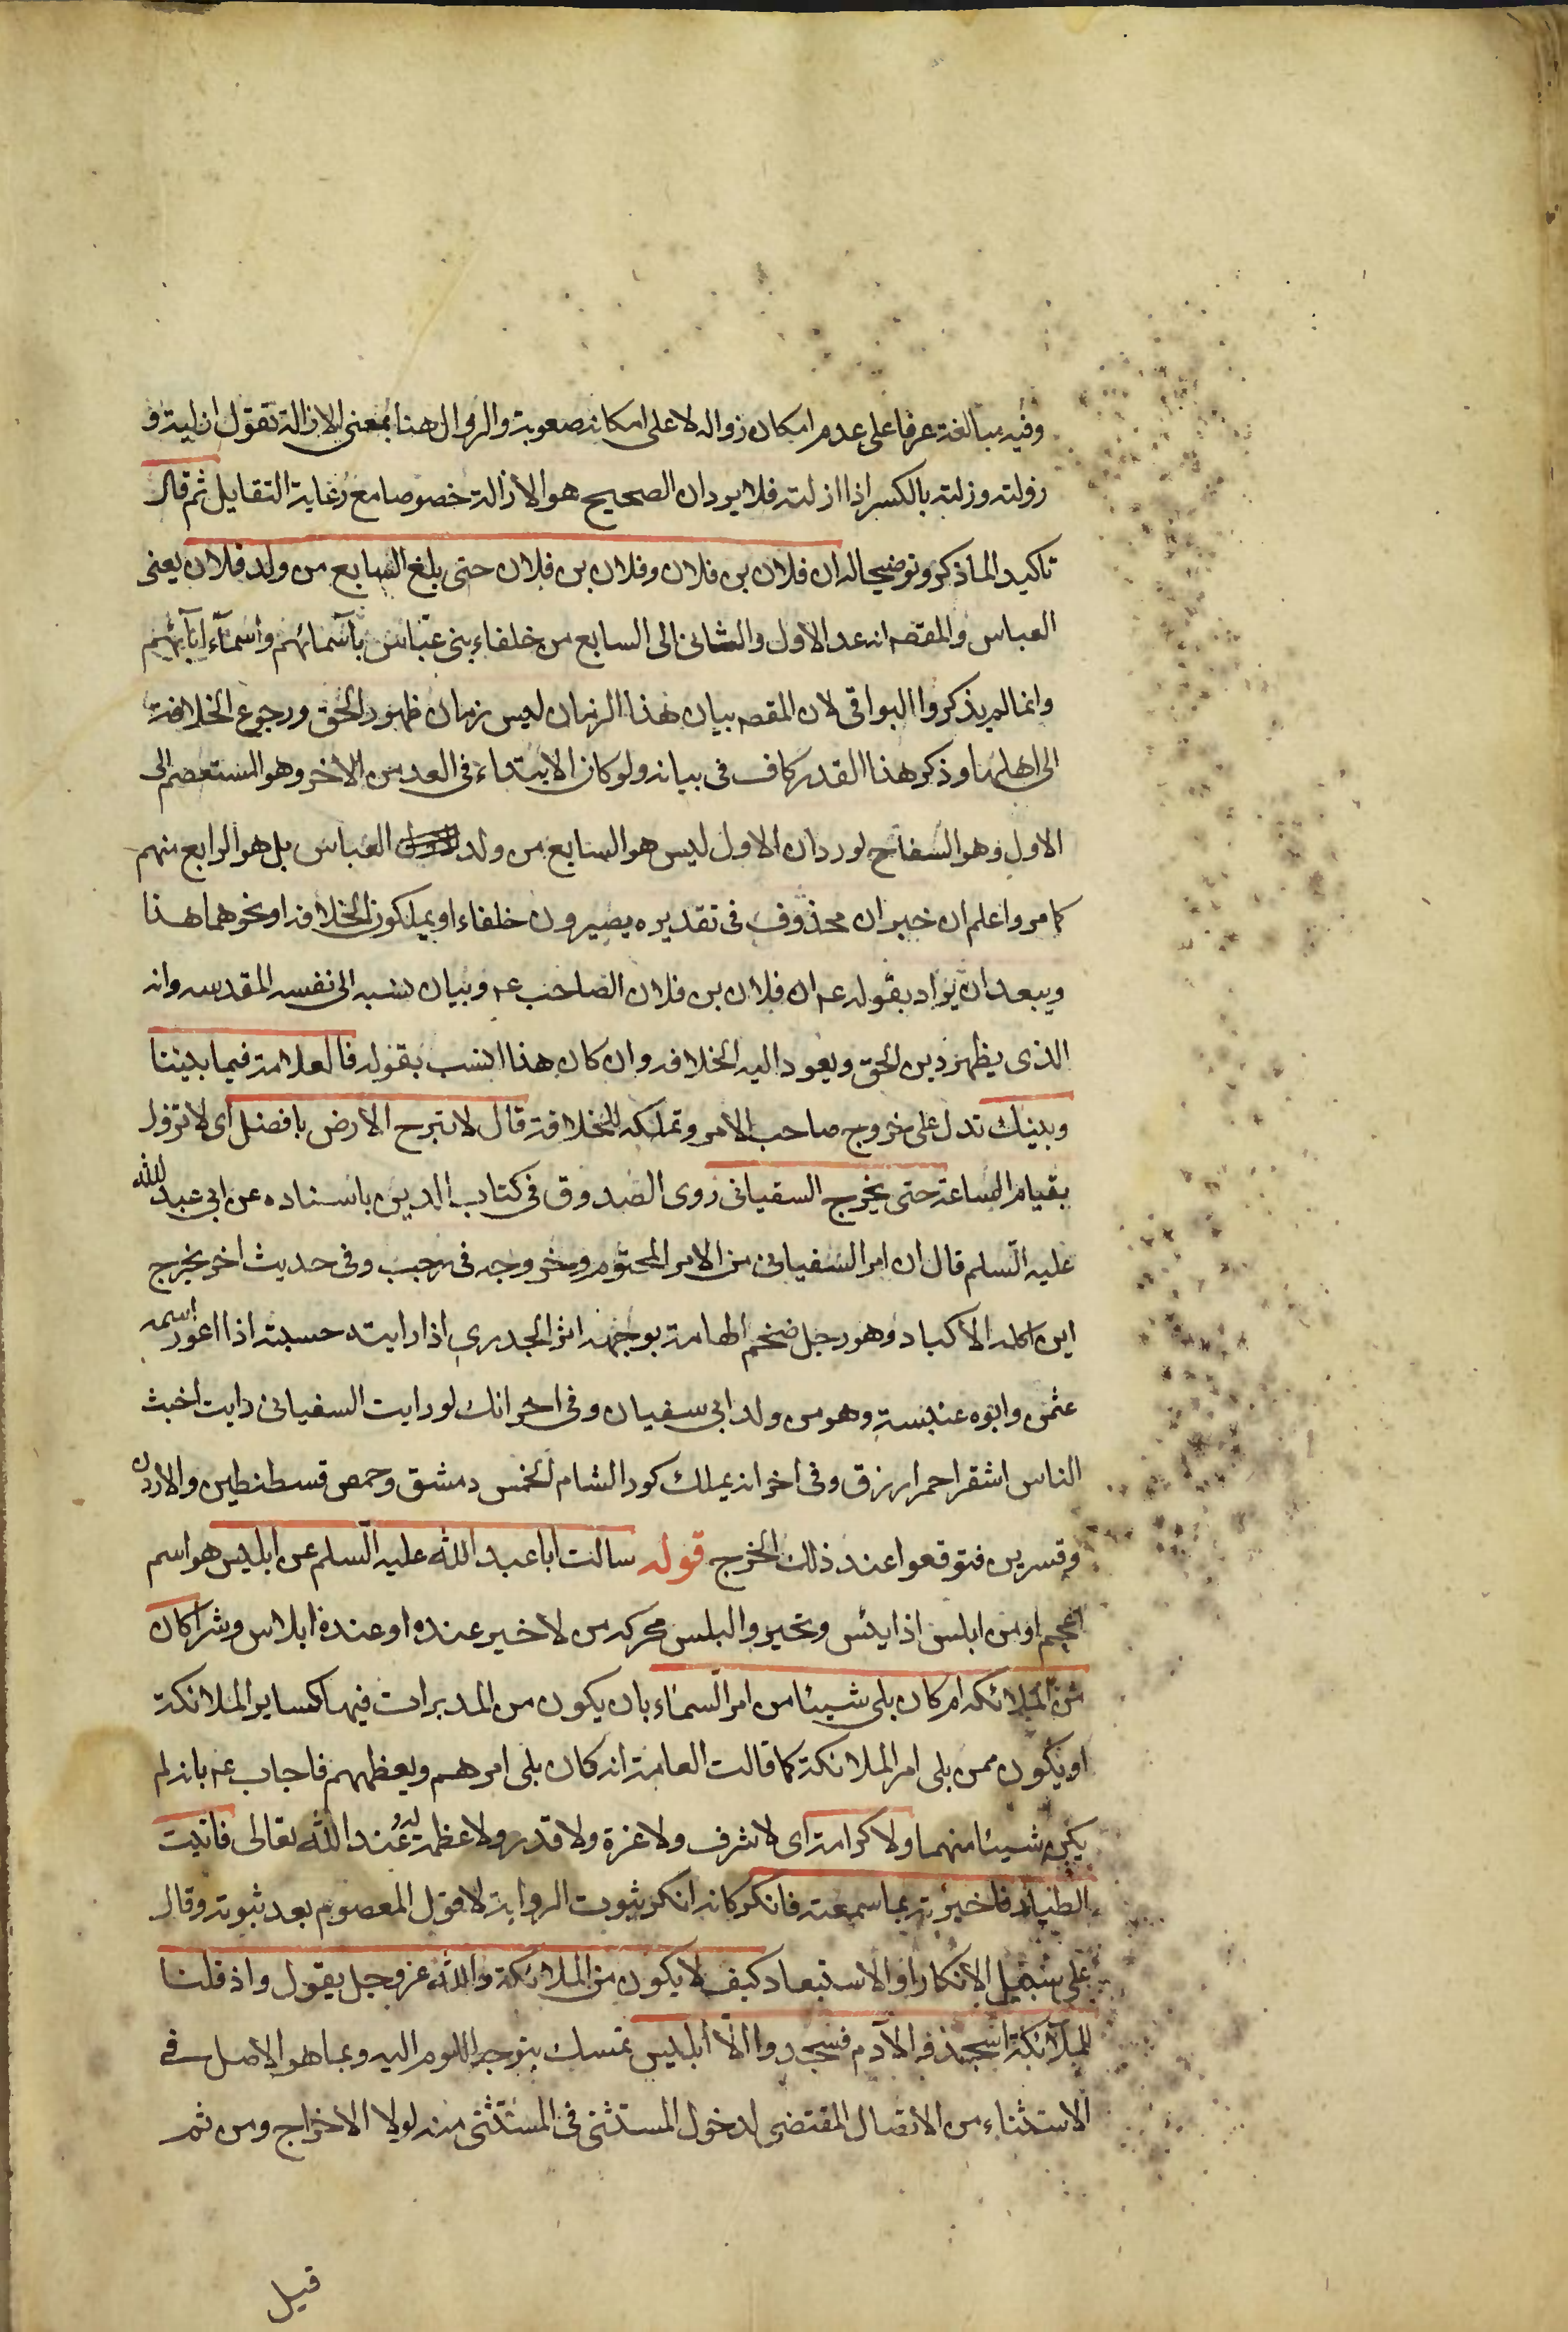 وفيه مبالغة عرفا على عدم امكان زواله لا على امكانه صعوبة والزوال هنا بمعنى الازالة تقول ازليته و
زولته وزلته بالكسر اذا ازلته فلا يرد ان الصحيح هو الازالة خصوصا مع رعاية التقابل ثم قال
تاكيد الما ذكر وتوضيحا له ان فلان بن فلان وفلان بن فلان حتى بلغ السابع من ولد فلان يعنى
العباس والمقصه انه عد الاول والثانى الى السابع من خلفاء بنى عباس باسمائهم واسماء ابآئهم
وانما لم يذكروا البواقى لان المقصه بيان هذا الزمان ليس زمان ظهور الحق ورجوع الخلافة
الى اهلها وذكر هذا القدر كاف فى بيانه ولو كان الابتداء فى العد من الاخر وهو المستعصم الى
الاول وهو السفاح لورد ان الاول ليس هو السابع من ولد العباس بل هو الرابع منهم
كما مر واعلم ان خبر ان محذوف فى تقديره يصيرون خلفاء او يملكون الخلافه او نحوهما هذا
ويبعد ان يراد بقوله عه ان فلان بن فلان الصاحب عه وبيان نسبه الى نفسه المقدسه وانه
الذى يظهر دين الحق ويعود اليه الخلافه وان كان هذا انسب بقوله فالعلامة فيما بيننا
وبينك تدل على خروج صاحب الامر وتملكه للخلافة قال لا تبرح الارض يا فضل اى لا تزول
بقيام الساعة حتى يخرج السفيانى روى الصدوق فى كتاب الدين باسناده عن ابى عبد الله
عليه السلم قال ان امر السفيانى من الامر المحتوم وخروجه فى رجب وفى حديث اخر يخرج
ابن اكله الاكباد وهو رجل ضخم الهامة بوجهه اثر الجدرى اذا رايته حسبته اذا اعور اسمه
عثمن وابوه عنبسة وهو من ولد ابى سفيان وفى اخر انك لو رايت السفيانى رايت اخبث
الناس اشقر احمر ازرق وفى اخر انه يملك كور الشام الخمس دمشق وحمص قسطنطين والاردن
وقسرين فتوقعوا عند ذلك الخرج قوله سالت ابا عبد الله عليه السلم عن ابليس هو اسم
اعجم او من ابلس اذا يئس وتحير والبلس محركه من لا خير عنده او عنده ابلاس وشر اكان
من الملائكه ام كان يلى شيئا من امر السماء بان يكون من المدبرات فيها كساير الملائكة
او يكون ممن يلى امر الملائكة كما قالت العامة انه كان يلى امرهم ويعظهم فاجاب عه بانه لم
يكن شيئا منهما ولا كرامة اى لا شرف ولا عزة ولا قدر ولا عظمة له عند الله تعالى فاتيت
الطيار فاخبرته بما سمعت فانكر كانه انكر ثبوت الرواية لا قول المعصوم بعد ثبوته وقال
على سبيل الانكار او الاستبعاد كيف لا يكون من الملائكة والله عز وجل يقول واذ قلنا
للملآئكة اسجدوا لآدم فسجدوا الا ابليس تمسك بتوجه اللوم اليه وبما هو الاصل فى
الاستثناء من الاتصال المقتضى لدخول المستثنى فى المستثنى منه لولا الاخراج ومن ثم
قيل